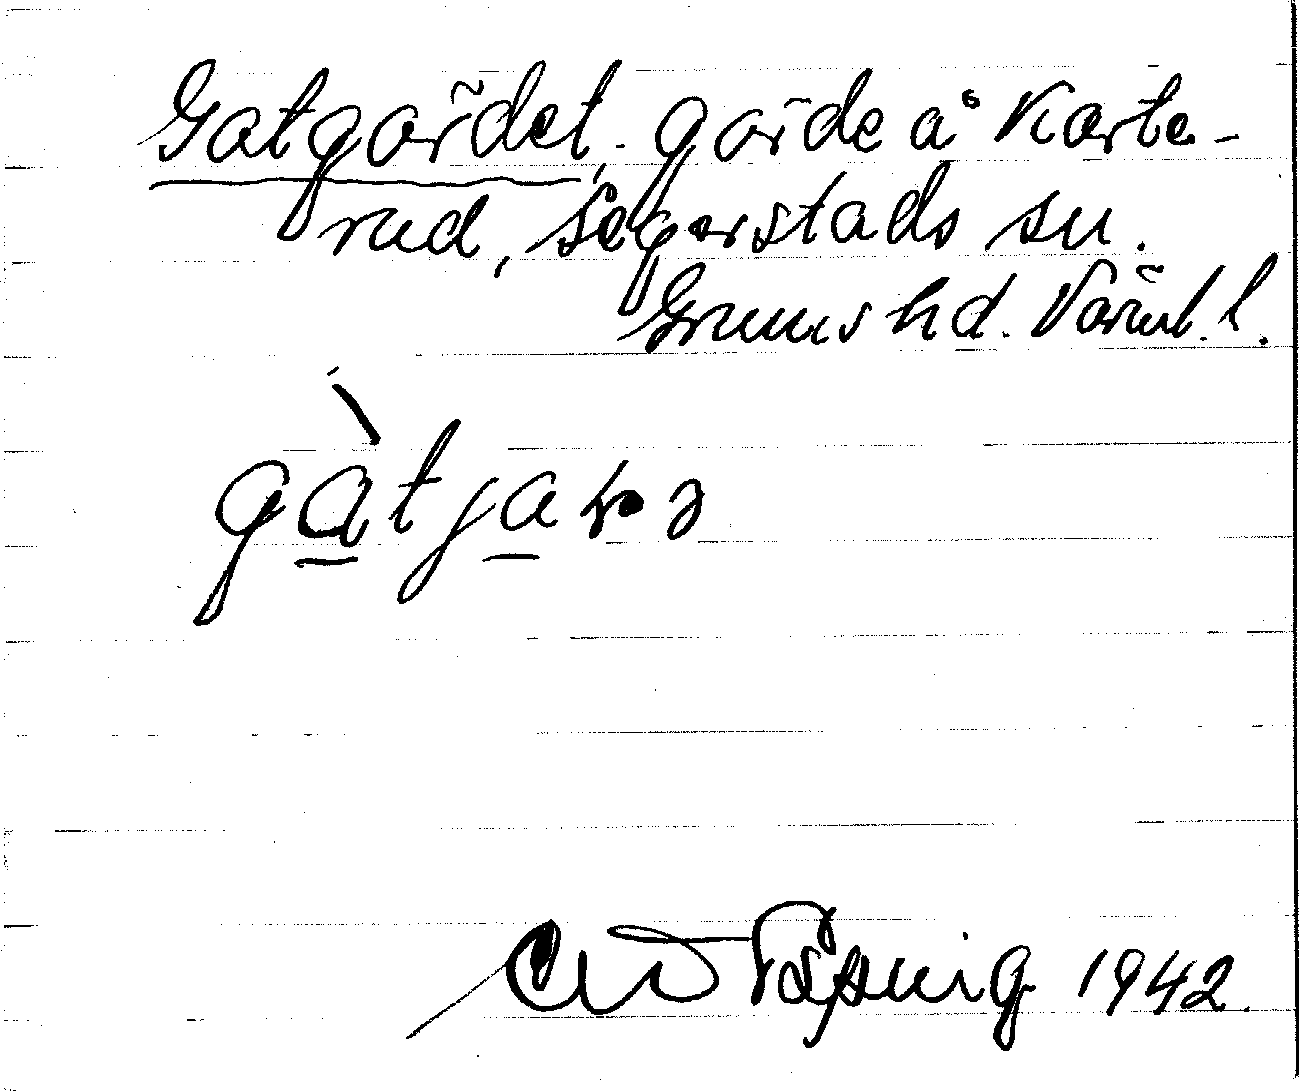 Gatgärdet, gärde å Karte-
rud, Segerstads sn.
Grums hd. Värml. l.
gàtjaɽə
1942